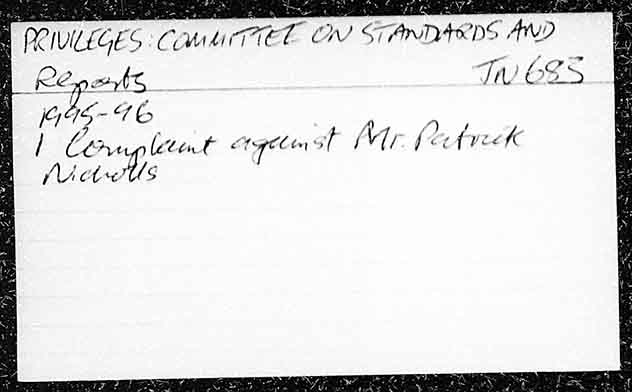 PRIVILEGES: COMMITTEE ON STANDARDS AND
Reports JN683
1995-96
1 Complaint against Mr. Patrick
Nicholls